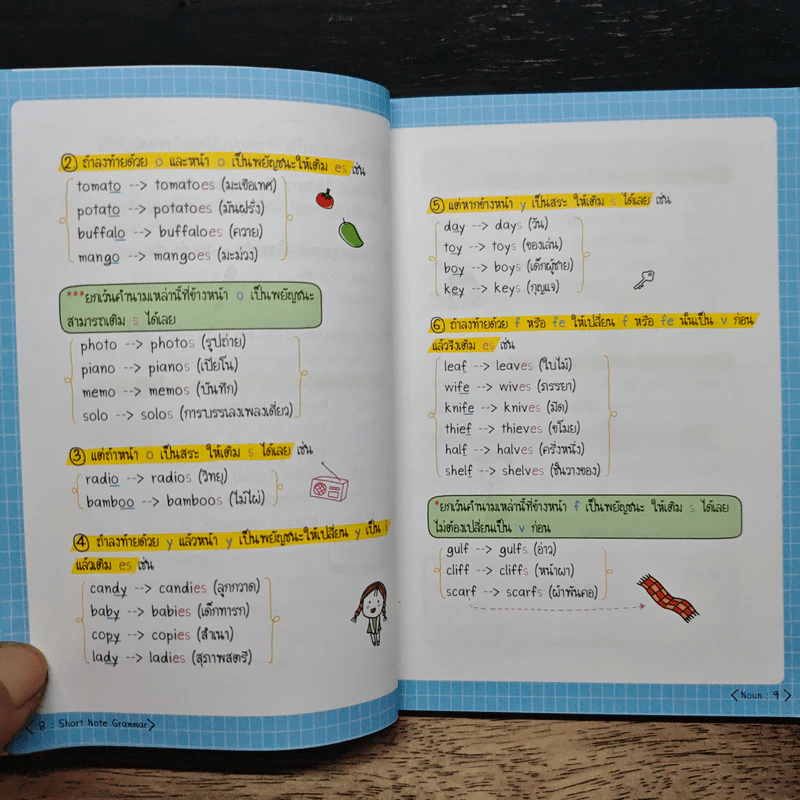 ② ถ้าลงท้ายด้วย o และหน้า o เป็นพยัญชนะให้เติม es เช่น
tomato --> tomatoes (มะเขือเทศ)
potato --> potatoes (มันฝรั่ง)
buffalo --> buffaloes (ควาย)
mango --> mangoes (มะม่วง)
***ยกเว้นคำนามเหล่านี้ที่ข้างหน้า o เป็นพยัญชนะ
สามารถเติม s ได้เลย
photo --> photos (รูปถ่าย)
piano --> pianos (เปียโน)
memo --> memos (บันทึก)
solo --> solos (การบรรเลงเพลงเดี่ยว)
③ แต่ถ้าหน้า o เป็นสระ ให้เติม s ได้เลย เช่น
radio --> radios (วิทยุ)
bamboo --> bamboos (ไม้ไผ่)
④ ถ้าลงท้ายด้วย y แล้วหน้า y เป็นพยัญชนะให้เปลี่ยน y เป็น i
แล้วเติม es เช่น
candy --> candies (ลูกกวาด)
baby --> babies (เด็กทารก)
copy --> copies (สำเนา)
lady --> ladies (สุภาพสตรี)
8 : Short Note Grammar
⑤ แต่หากข้างหน้า y เป็นสระ ให้เติม s ได้เลย เช่น
day --> days (วัน)
toy --> toys (ของเล่น)
boy --> boys (เด็กผู้ชาย)
key --> keys (กุญแจ)
⑥ ถ้าลงท้ายด้วย f หรือ fe ให้เปลี่ยน f หรือ fe นั้นเป็น v ก่อน
แล้วจึงเติม es เช่น
leaf --> leaves (ใบไม้)
wife --> wives (ภรรยา)
knife --> knives (มีด)
thief --> thieves (ขโมย)
half --> halves (ครึ่งหนึ่ง)
shelf --> shelves (ชั้นวางของ)
*ยกเว้นคำนามเหล่านี้ที่ข้างหน้า f เป็นพยัญชนะ ให้เติม s ได้เลย
ไม่ต้องเปลี่ยนเป็น v ก่อน
gulf --> gulfs (อ่าว)
cliff --> cliffs (หน้าผา)
scarf --> scarfs (ผ้าพันคอ)
Noun : 9